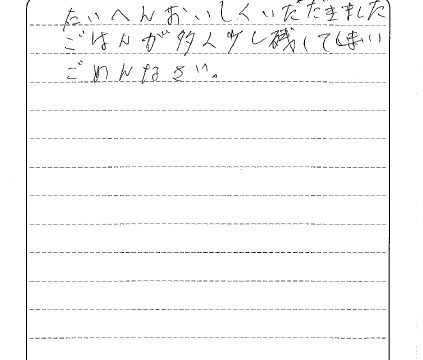 たいへんおいしくいただきました
ごはんが多く少し残してしまい
ごめんなさい。